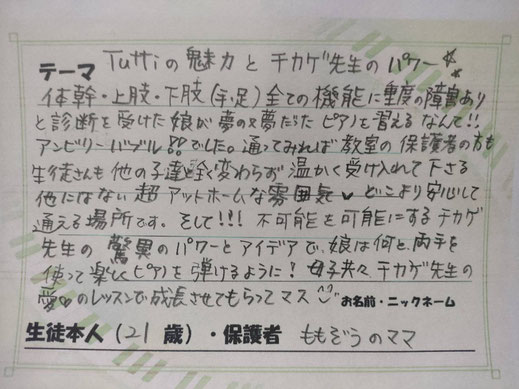 テーマ Tuttiの魅力とチカゲ先生のパワー☆
体幹・上肢・下肢(手、足)全ての機能に重度の障害あり
と診断を受けた娘が夢の又夢だったピアノを習えるなんて!!
アンビリーバブル!?でした。通ってみれば教室の保護者の方も
生徒さんも他の子達と全く変わらず温かく受け入れて下さる
他にはない超アットホームな雰囲気♥どこより安心して
通える場所です。そして!!! 不可能を可能にするチカゲ
先生の驚異のパワーとアイデアで、娘は何と両手を
使って楽しくピアノを弾けるように!母子共々チカゲ先生の
愛♡のレッスンで成長させてもらってマス
お名前・ニックネーム
生徒本人(21歳)・保護者 ももぞうのママ